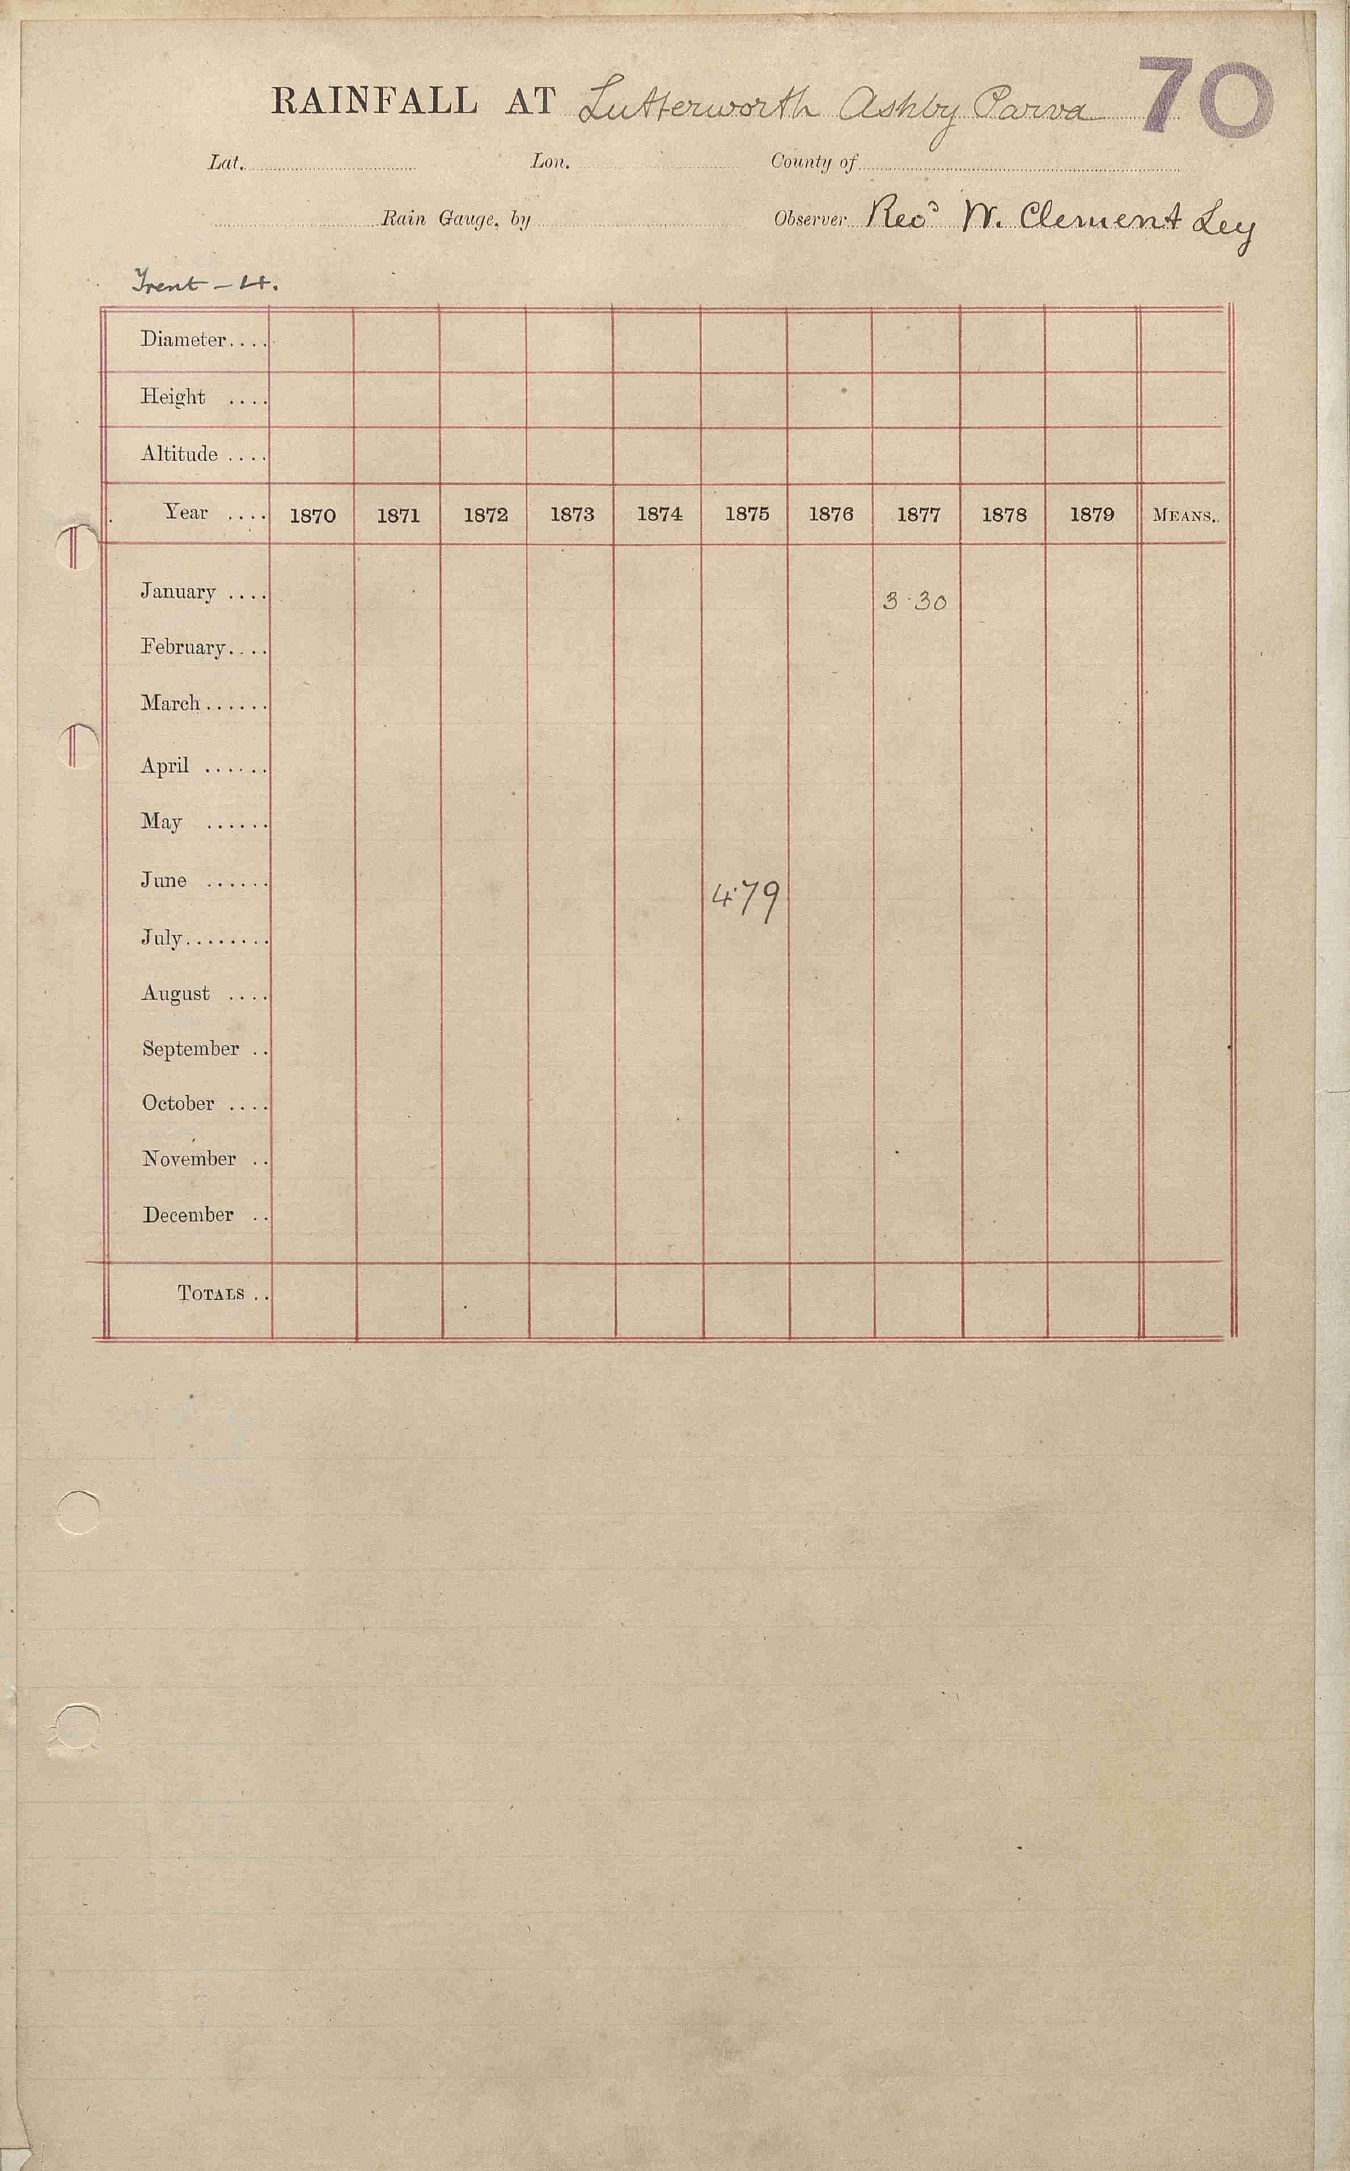 70
RAINFALL AT Lutterworth Ashby Parva
Lat. Lon. County of
Rain Gauge, by Observer Revd W. Clement Ley
Trent - 4.
Diameter....
Height ....
Altitude ....
Year .... 1870 1871 1872 1873 1874 1875 1876 1877 1878 1879 MEANS.
January .... 3.30
February....
March......
April ......
May ......
June ...... 4.79
July........
August ....
September ..
October ....
November ..
December ..
TOTALS ..